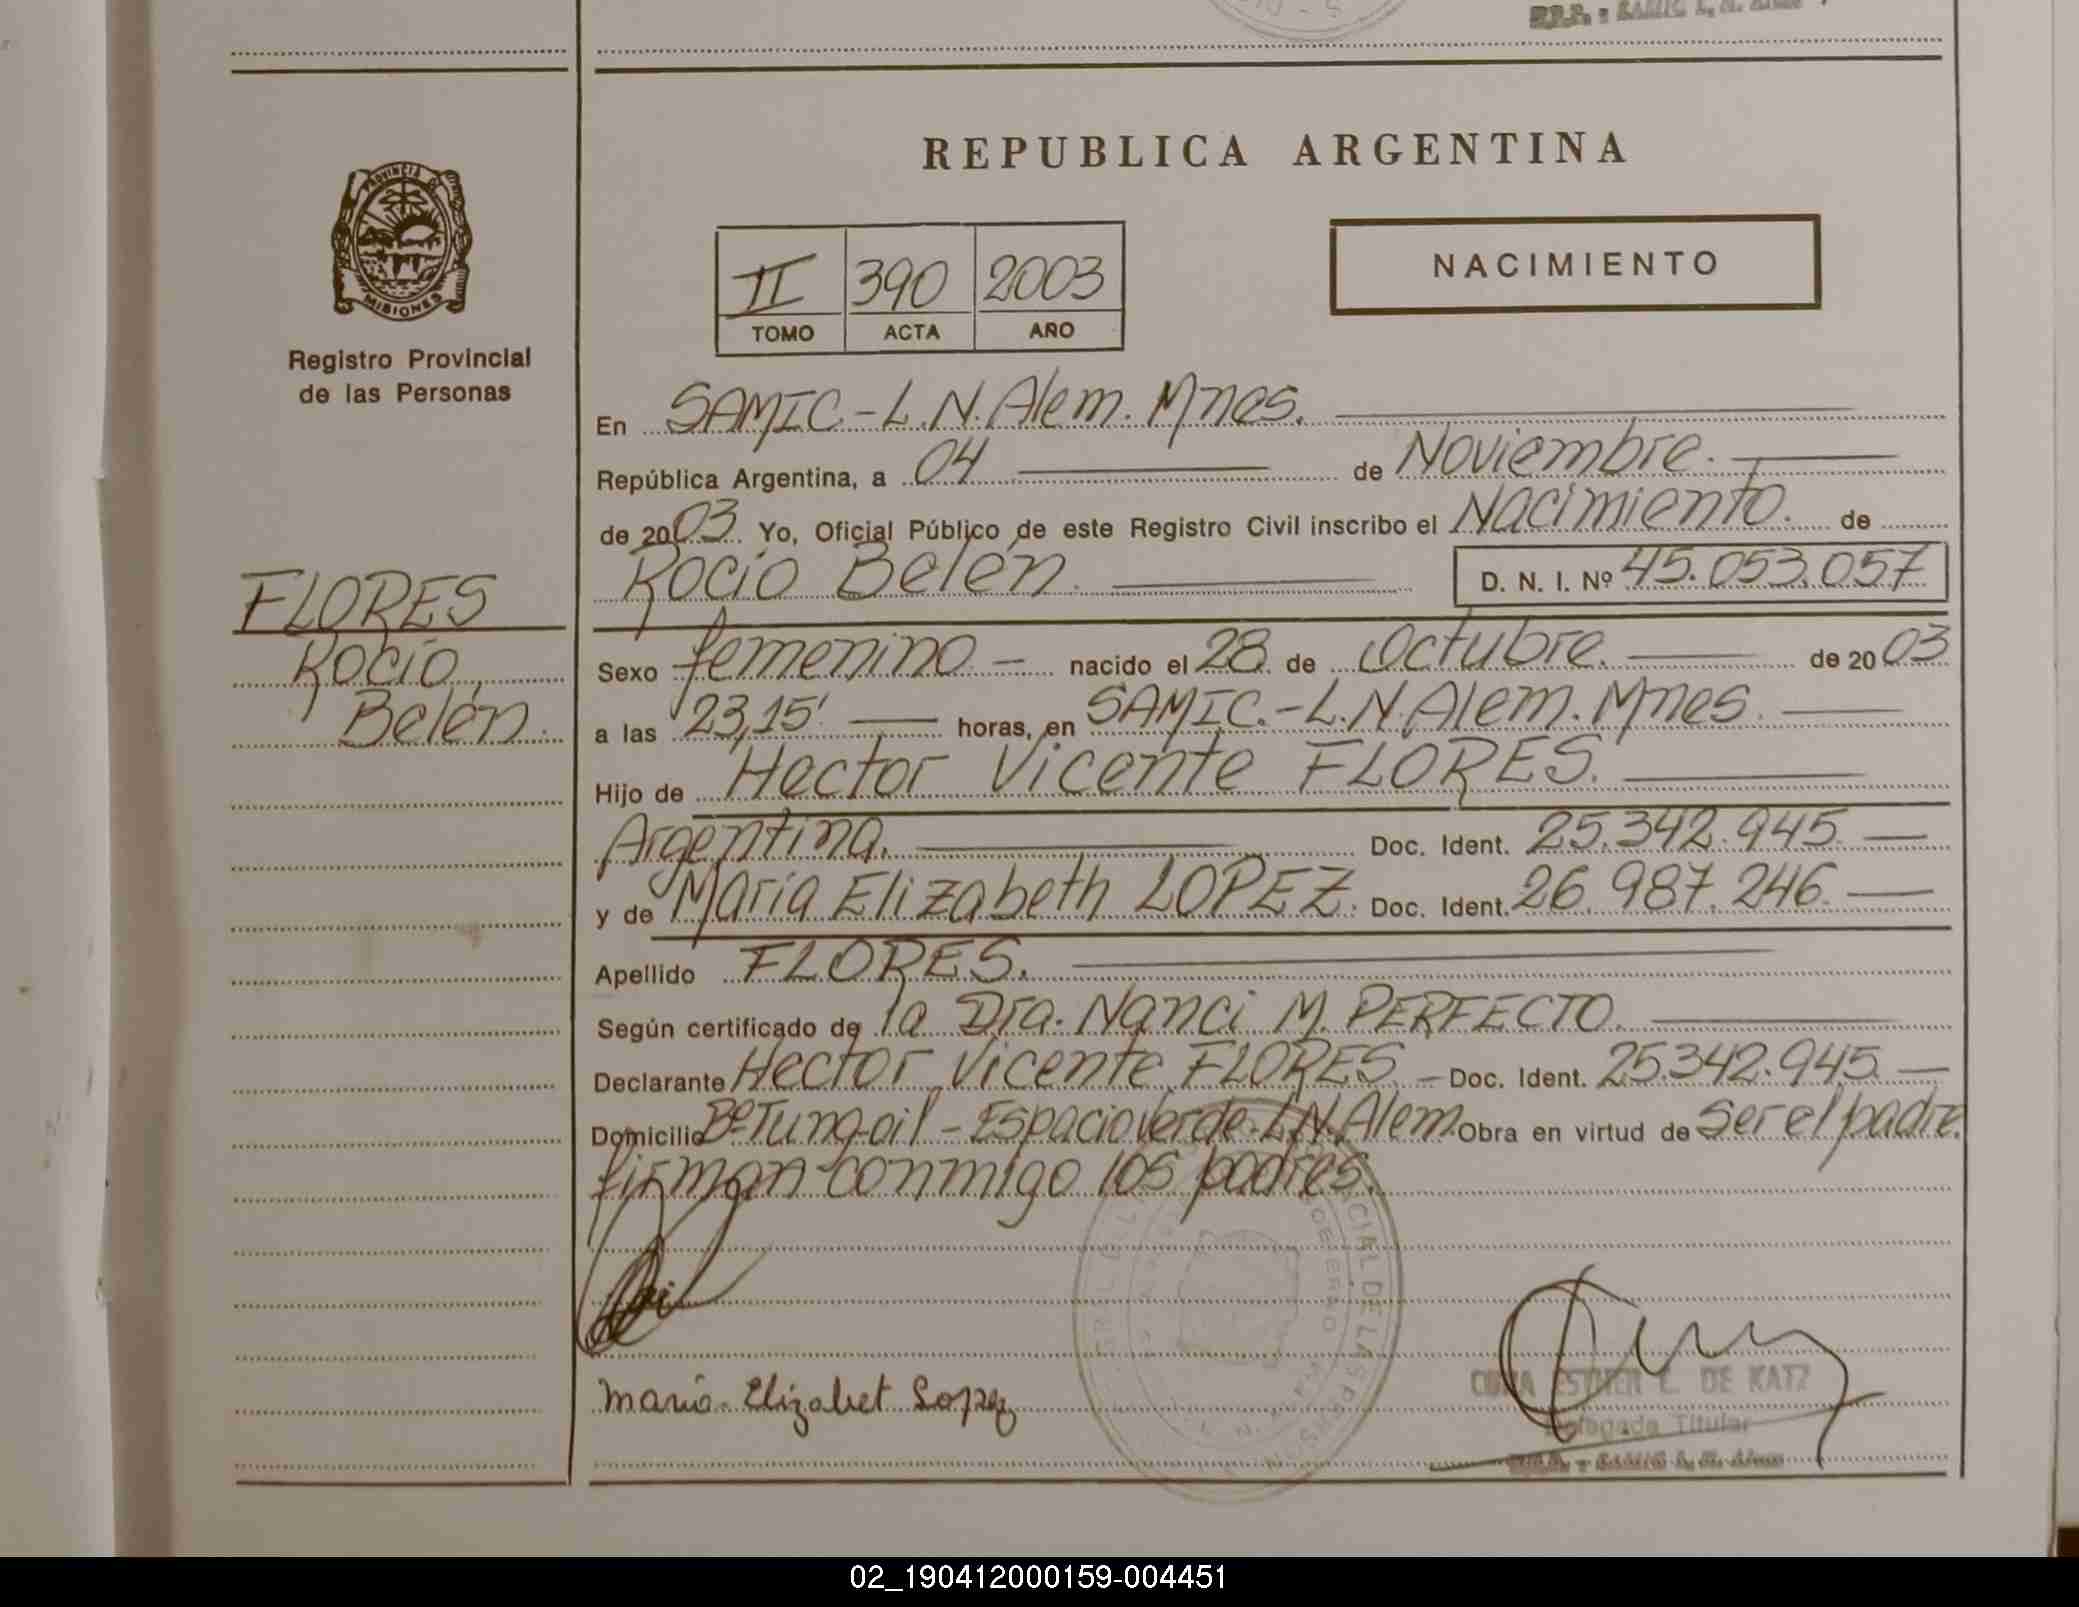 REPUBLICA ARGENTINA
PROVINCIA DE
MISIONES
Registro Provincial
de las Personas
II 390 2003
TOMO ACTA AÑO
NACIMIENTO
En SAMIC.-L.N.Alem.Mnes.
República Argentina, a 04 de Noviembre.
de 2003 Yo, Oficial Público de este Registro Civil inscribo el Nacimiento. de
Rocío Belén. D. N. I. Nº 45.053.057
FLORES
Rocío
Belén.
Sexo femenino - nacido el 28 de Octubre. de 2003
a las 23,15' horas, en SAMIC.-L.N.Alem.Mnes
Hijo de Hector Vicente FLORES.
Argentina. Doc. Ident. 25.342.945
y de María Elizabeth LOPEZ. Doc. Ident. 26.987.246
Apellido FLORES.
Según certificado de la Dra. Nanci M. PERFECTO.
Declarante Hector Vicente FLORES - Doc. Ident. 25.342.945
Domicilio Bº Tung-oil - Espacio Verde-L.N.Alem. Obra en virtud de Ser el padre.
firman conmigo los padres.
Maria Elizabet Lopez
ESTHER DE KATZ
Delegada Titular
02_190412000159-004451